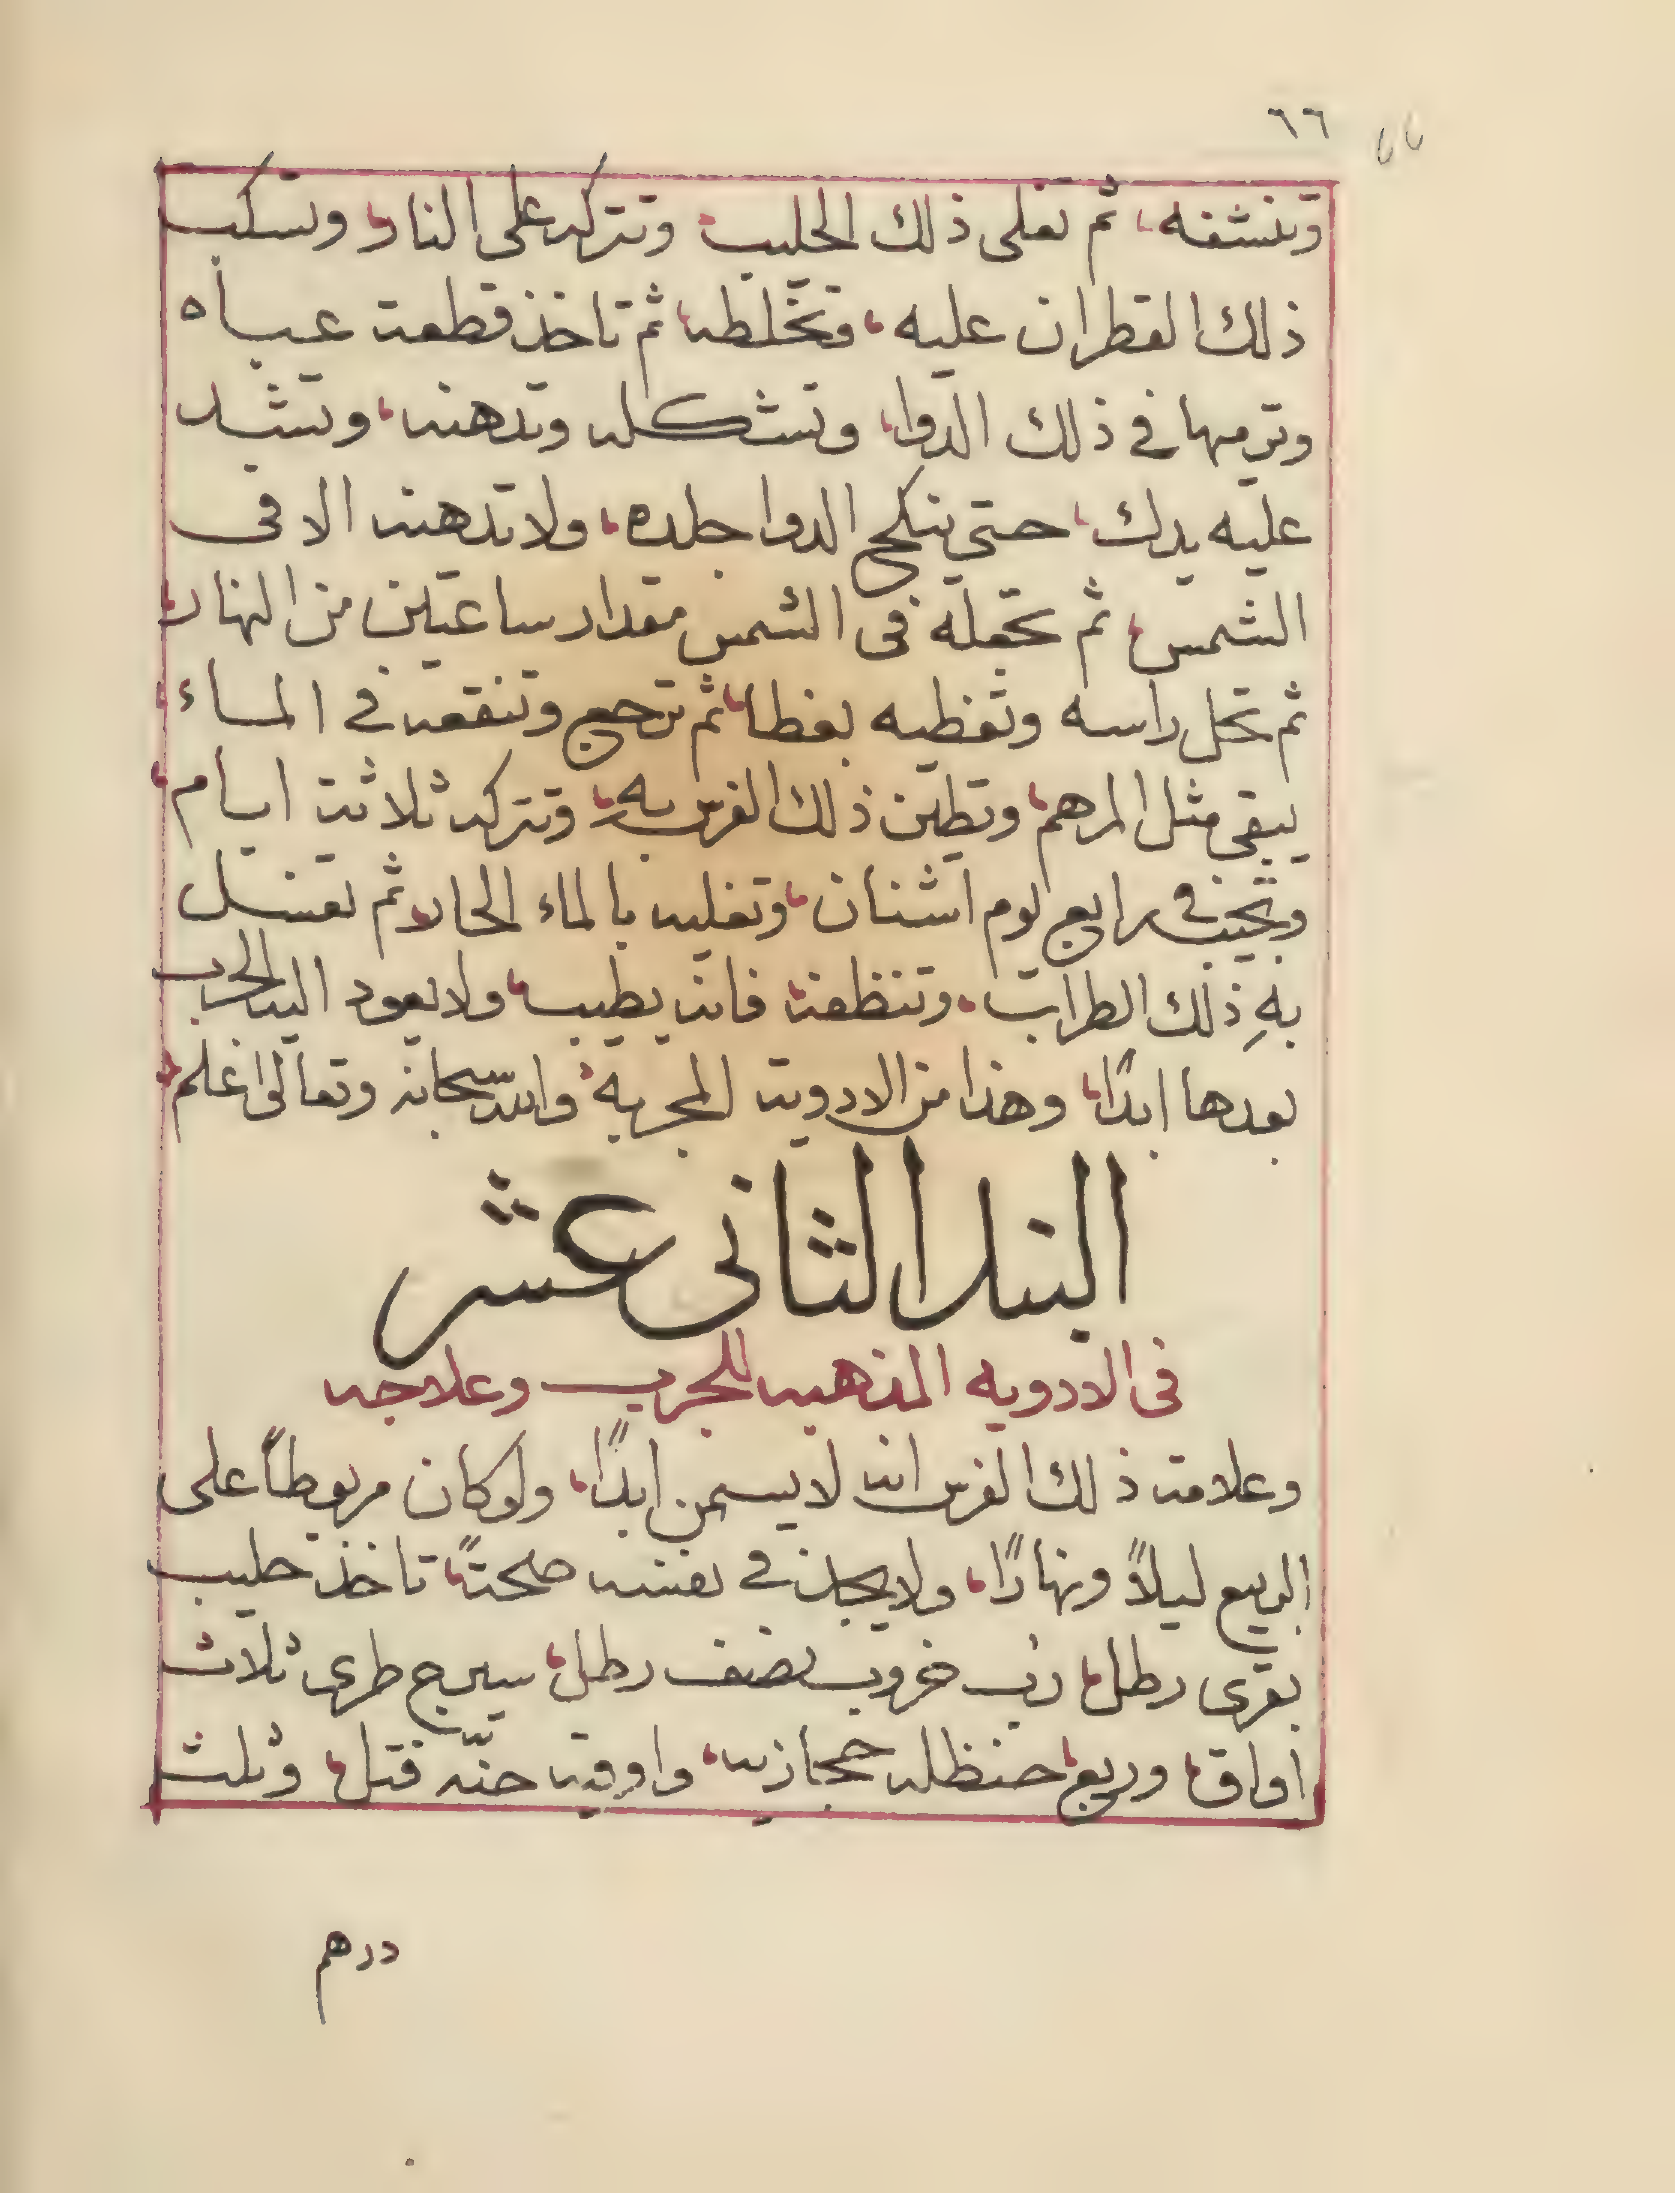 ٦٦
وتنشفه، ثم تغلى ذلك الحليب، وتتركه على النار، وتسكب
ذلك القطران عليه، وتخلطه، ثم تاخذ قطعة عباه
وترميها في ذلك الدوا، وتشكله وتدهنه، وتشد
عليه يدك، حتي ينكح الدوا جلده، ولا تدهنه الا فى
الشمس، ثم تجعله فى الشمس مقدار ساعتين من النهار،
ثم تحل راسه وتغطيه بغطا، ثم ترجع وتنقعه في الماء،
يبقى مثل المرهم، وتطين ذلك الفرس به، وتتركه ثلاثة ايام،
وتجيب في رابع يوم اشنان، وتغليه بالماء الحار، ثم تغسل
بهِ ذلك الطراب، وتنظفه، فانه يطيب، ولا يعود اليه الجرب
بعدها ابدًا، وهذا من الادوية المجربة، والله سبحانه وتعالى اعلم،
البند الثانى عشر
فى الادويه المذهبه للجرب وعلاجه
وعلامة ذلك الفرس انه لا يسمن ابدًا، ولو كان مربوطاً على
الربيع ليلاً ونهارًا، ولا يجد في نفسه صحتًا، تاخذ حليب
بقرى رطل، رب خروب نصف رطل، سيرج طرى ثلاث
اواق، وربع، حنظله حجازيه، واوقية حنّه قتل، وثلث
درهم